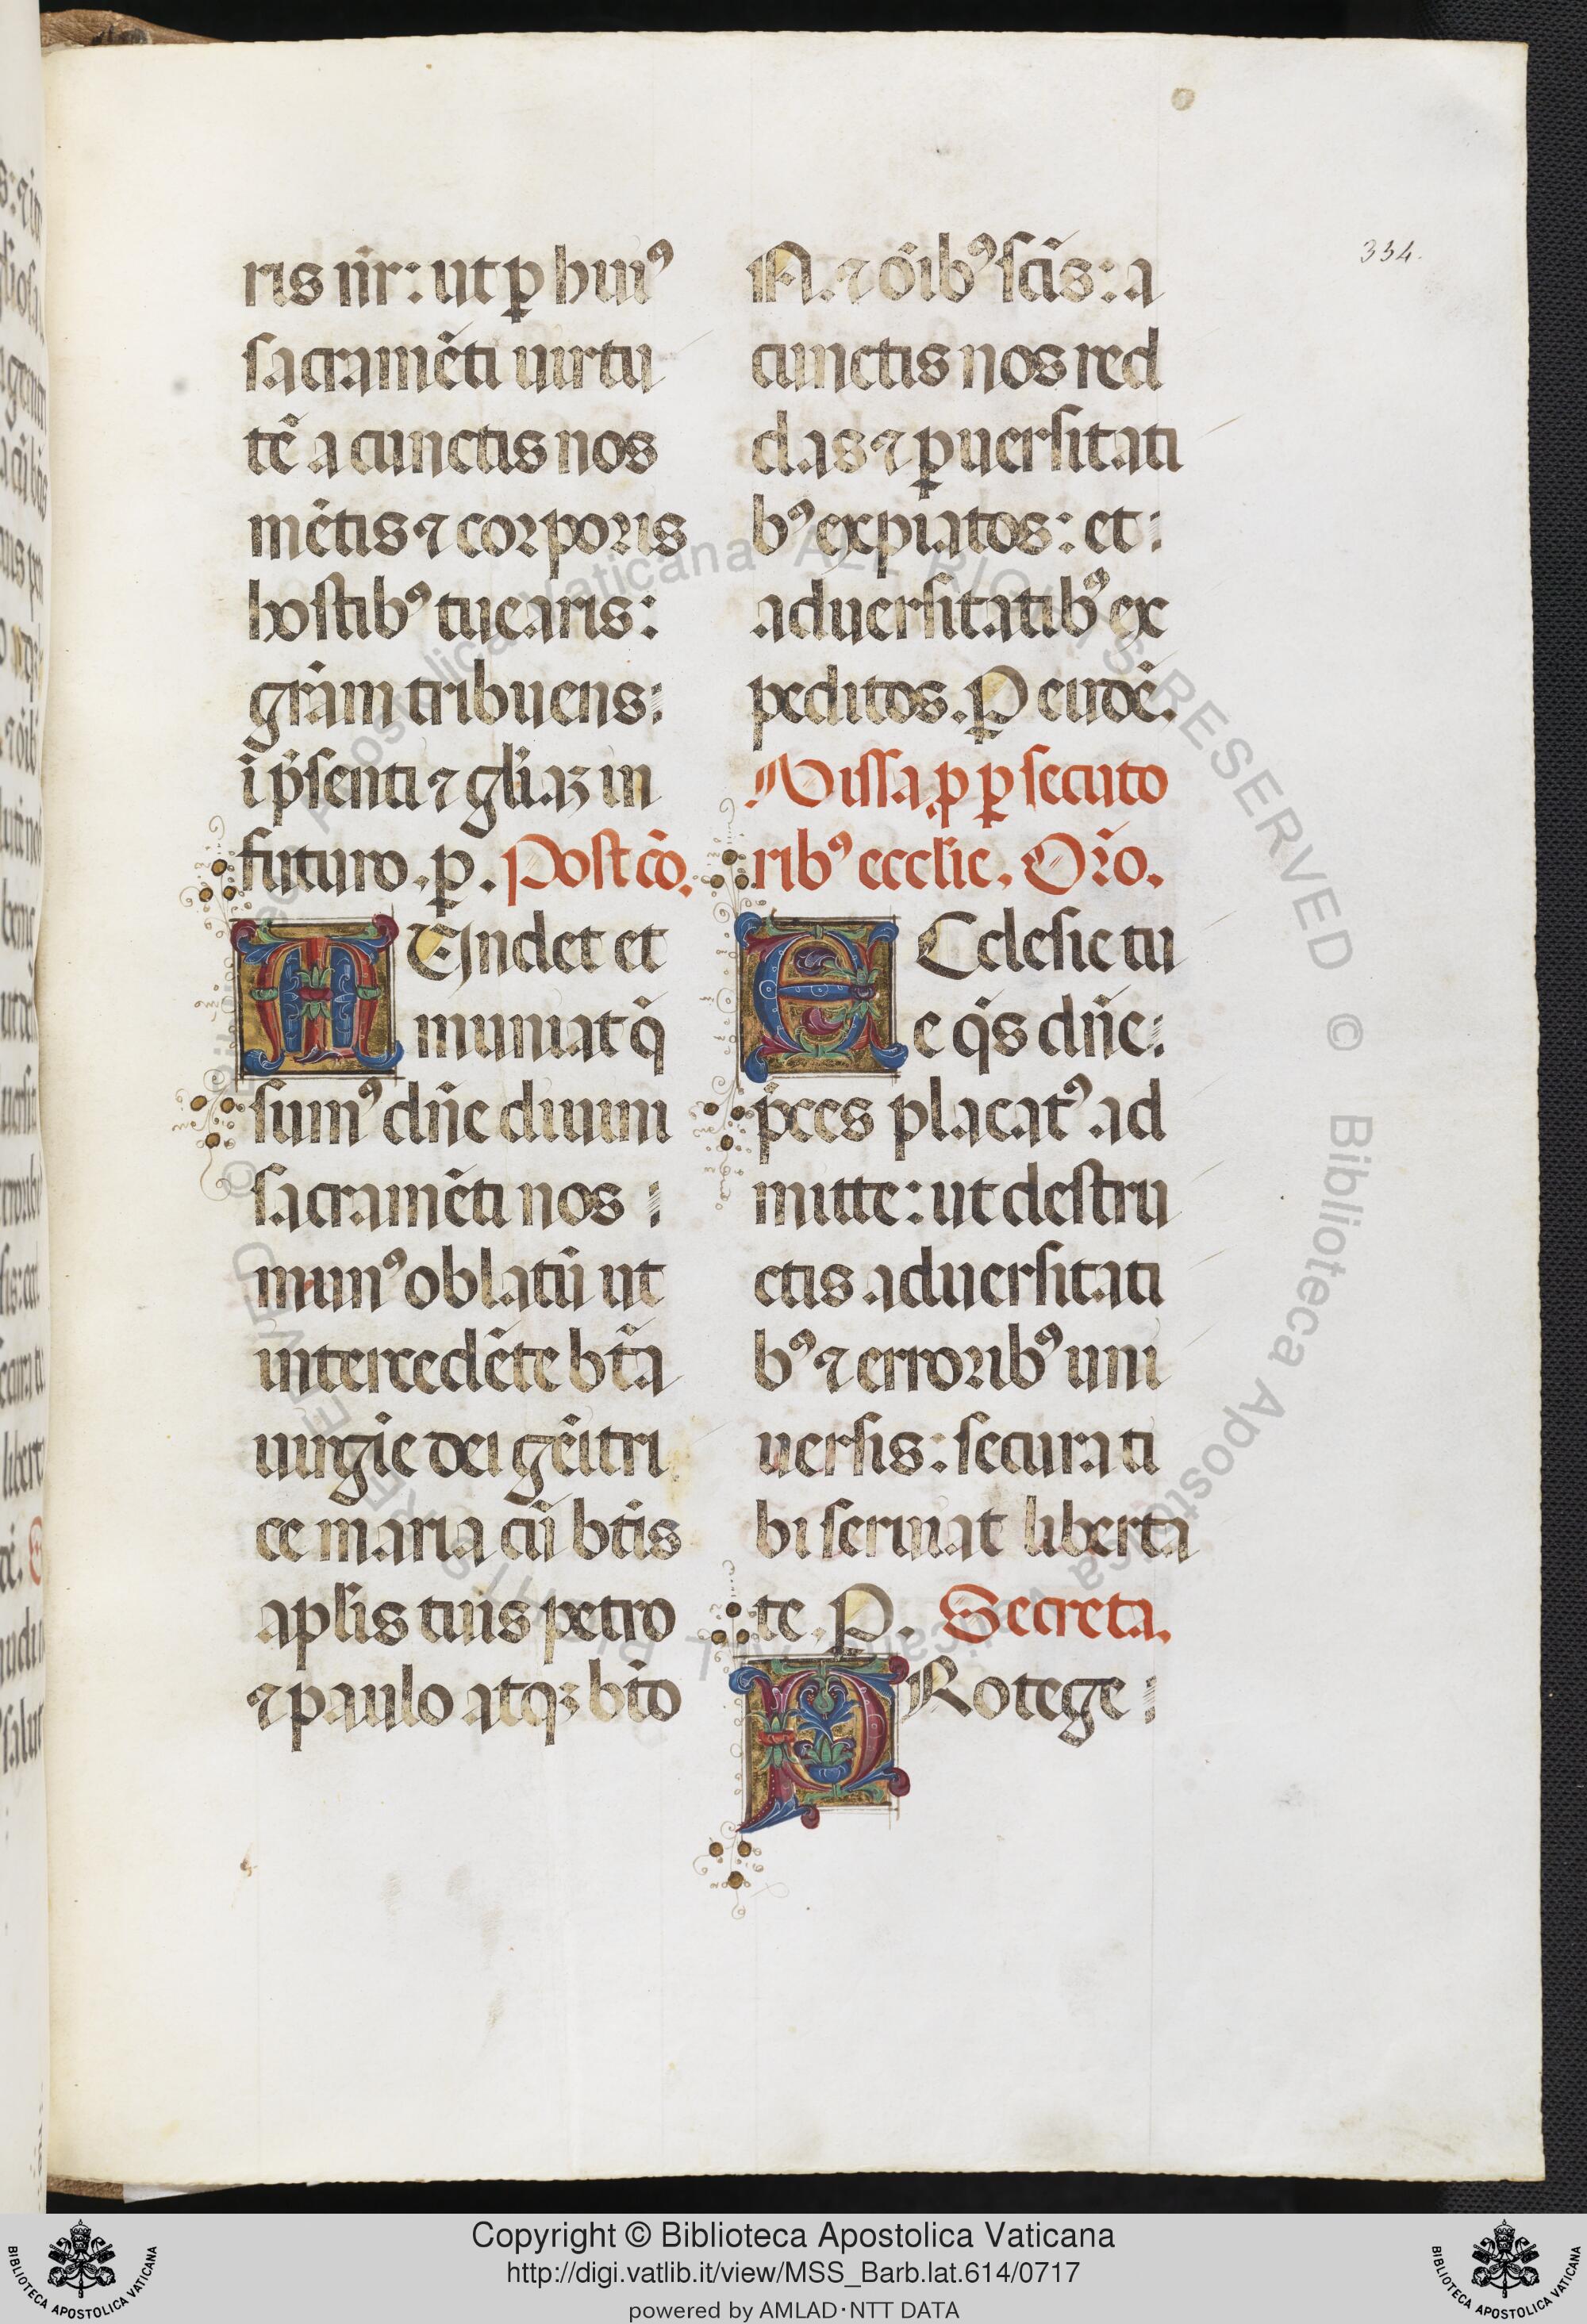 334.
ris nr̄: ut ꝑ huiꝰ
sacramēti uirtu
tē a cunctis nos
mētis ⁊ corporis
hostibꝰ tuearis:
gr̄am tribuens:
ī p̄senti ⁊ gl̄iaꝫ in
futuro. p̱. Post cō.
MUndet et
muniat q̄
sumꝰ dn̄e diuini
sacramēti nos:
munꝰ oblatū ut
intercedēte bt̄a
uirgīe dei gēitri
ce maria cū btīs
apl̄is tuis petro
⁊ paulo atqꝫ bt̄o
N. ⁊ oībꝰ sc̄is: a
cunctis nos red
das ⁊ ꝑuersitati
bꝰ expiatos: et:
aduersitatibꝰ ex
peditos. P eūdē.
Missa ꝓ ꝑsecuto
ribꝰ eccl̄ie. Or̄o.
ECclesie tu
e q̄s dn̄e:
p̄ces placatꝰ ad
mitte: ut destru
ctis aduersitati
bꝰ ⁊ erroribꝰ uni
uersis: secura ti
bi seruiat liberta
te. P. Secreta.
PRotege:
Copyright © Biblioteca Apostolica Vaticana
http://digi.vatlib.it/view/MSS_Barb.lat.614/0717
powered by AMLAD·NTT DATA
BIBLIOTECA APOSTOLICA VATICANA
BIBLIOTECA APOSTOLICA VATICANA